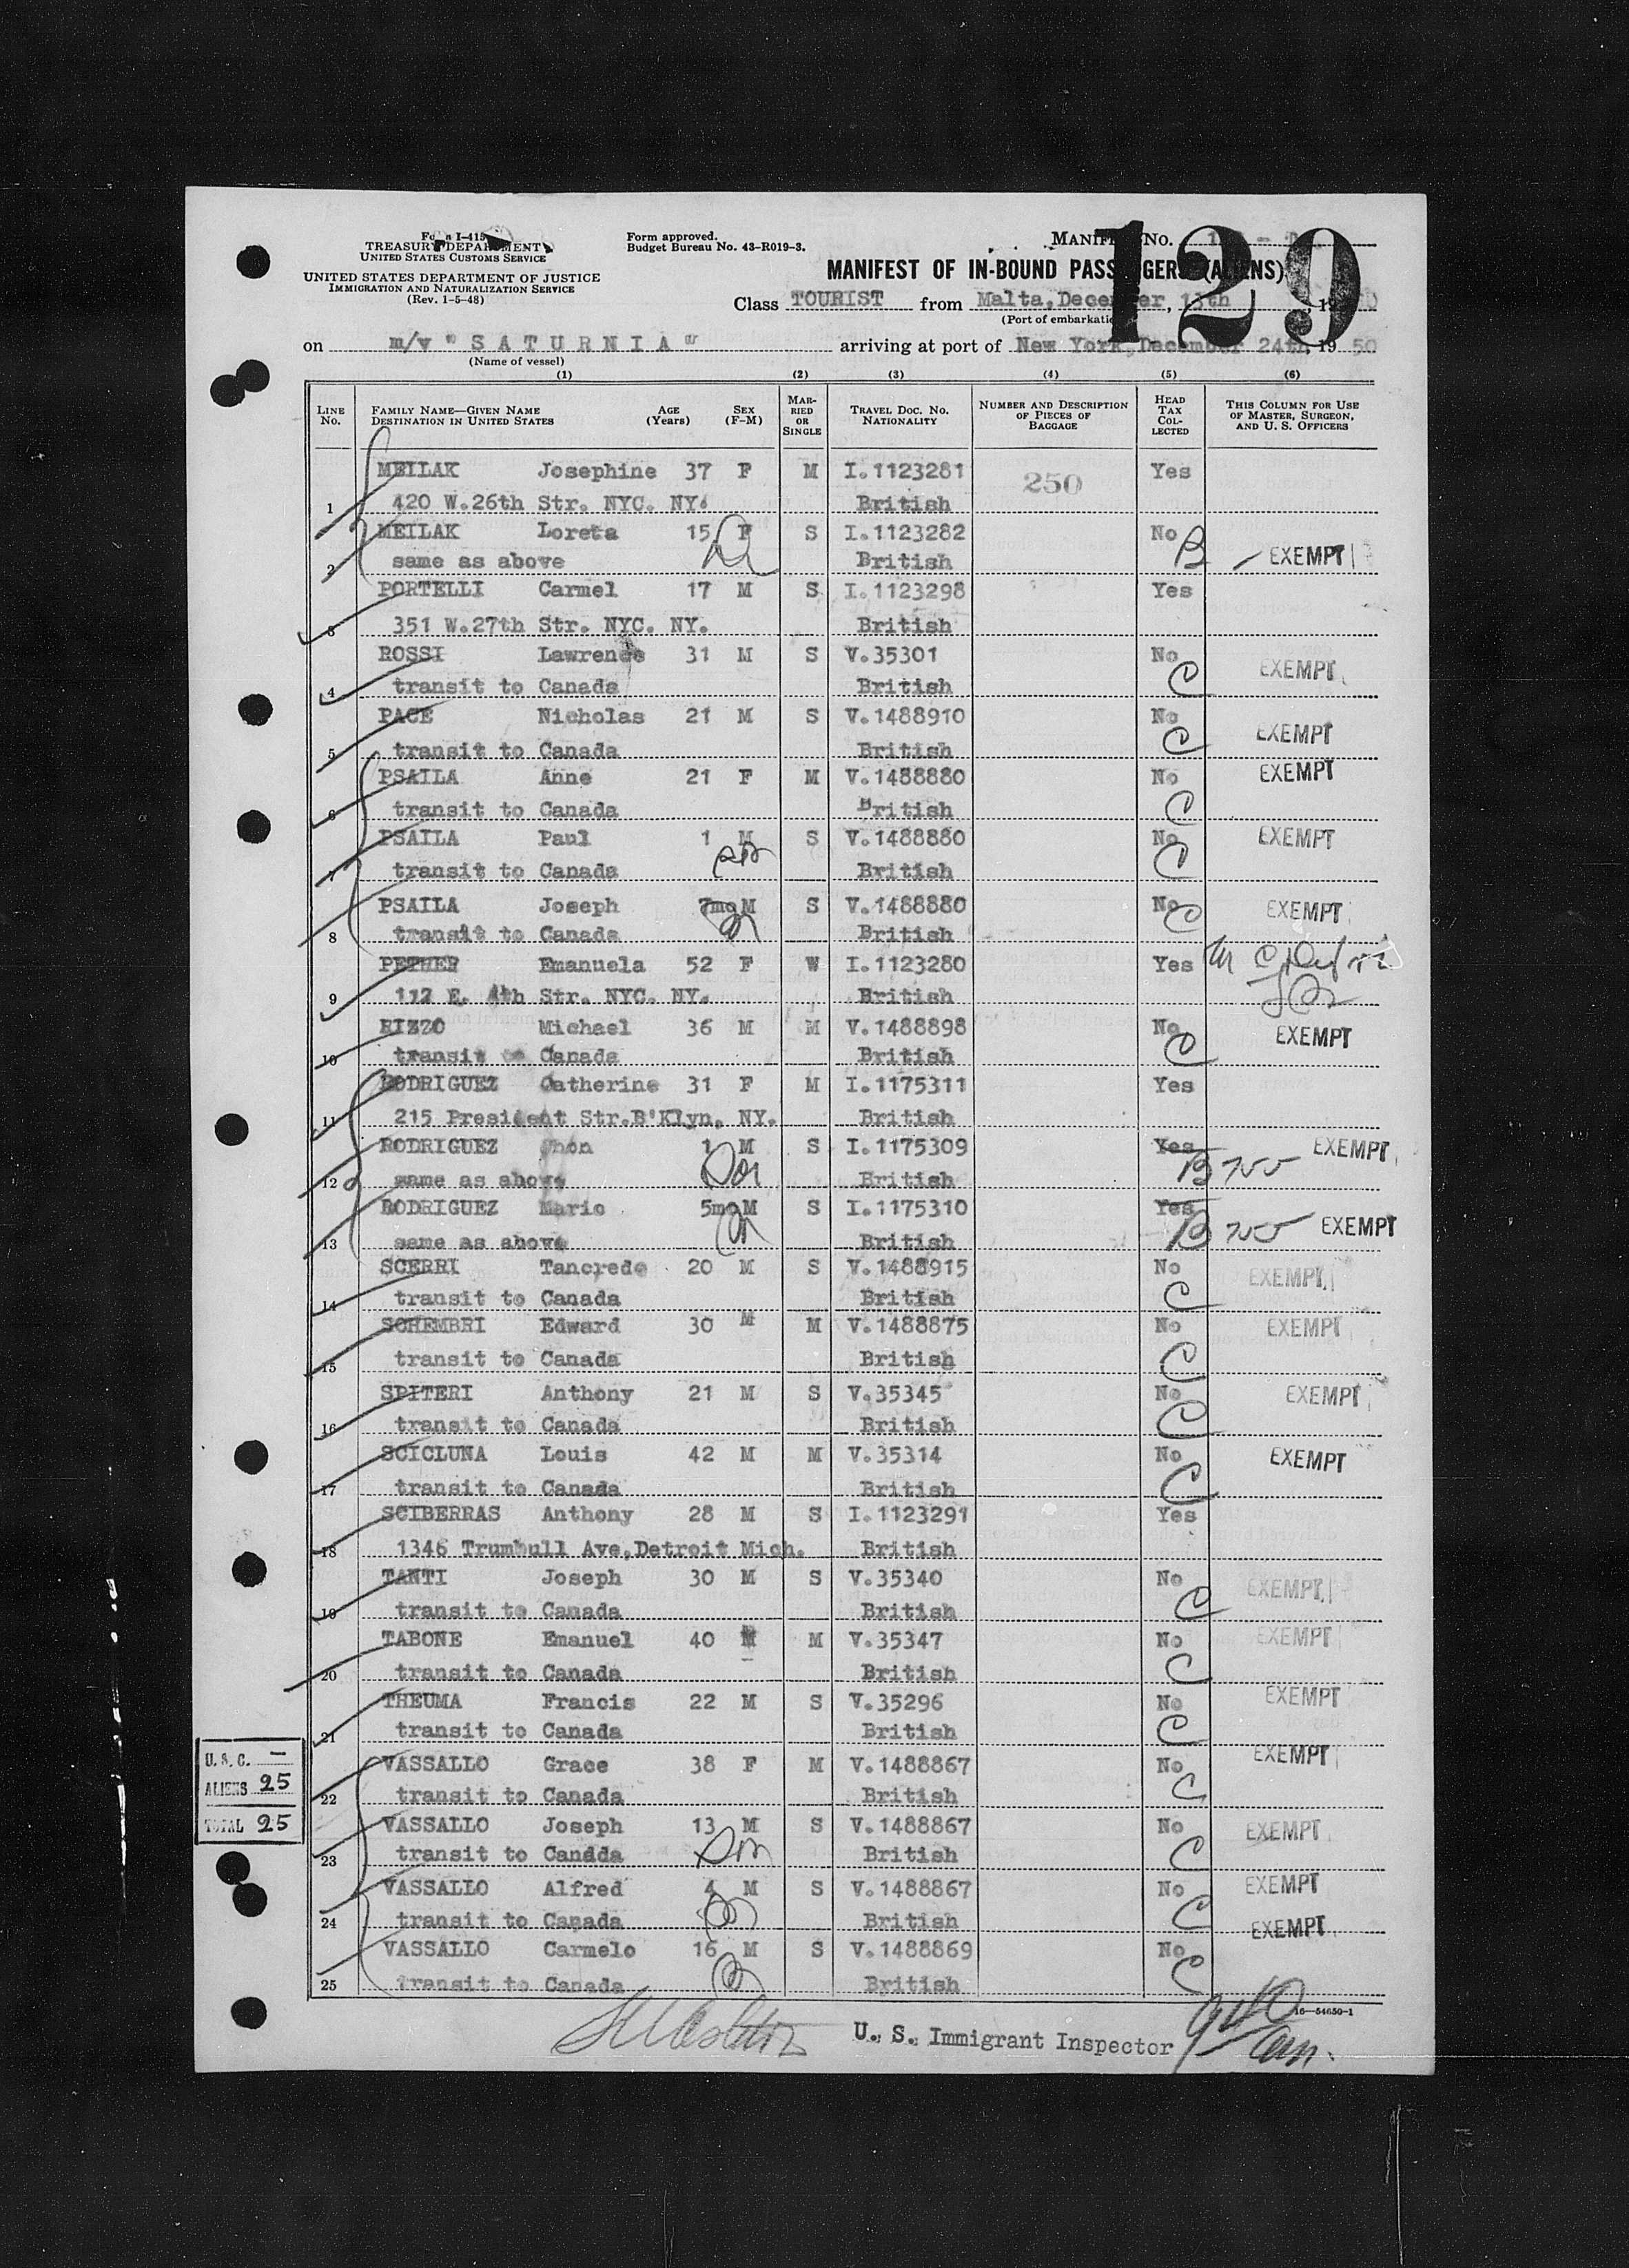 Form I-415
TREASURY DEPARTMENT
UNITED STATES CUSTOMS SERVICE
UNITED STATES DEPARTMENT OF JUSTICE
IMMIGRATION AND NATURALIZATION SERVICE
(Rev. 1-5-48)
Form approved.
Budget Bureau No. 43-R019-3.
MANIFEST NO.
129
MANIFEST OF IN-BOUND PASSENGERS (ALIENS)
Class TOURIST from Malta, December, 13th, 19
(Port of embarkation)
on m/v " S A T U R N I A " arriving at port of New York, December 24th, 19 50
(Name of vessel)
(1) (2) (3) (4) (5) (6)
LINE NO. FAMILY NAME—GIVEN NAME DESTINATION IN UNITED STATES AGE (Years) SEX (F-M) MARRIED OR SINGLE TRAVEL DOC. NO. NATIONALITY NUMBER AND DESCRIPTION OF PIECES OF BAGGAGE HEAD TAX COLLECTED THIS COLUMN FOR USE OF MASTER, SURGEON, AND U. S. OFFICERS
MEILAK Josephine 37 F M I.1123281 250 Yes
1 420 W.26th Str. NYC. NY. British
MEILAK Loreta 15 F S I.1123282 No
2 same as above British B EXEMPT
PORTELLI Carmel 17 M S I.1123298 Yes
3 351 W.27th Str. NYC. NY. British
ROSSI Lawrence 31 M S V.35301 No EXEMPT
4 transit to Canada British C
PACE Nicholas 21 M S V.1488910 No EXEMPT
5 transit to Canada British C
PSAILA Anne 21 F M V.1488880 No EXEMPT
6 transit to Canada British C
PSAILA Paul 1 M S V.1488880 No EXEMPT
7 transit to Canada British C
PSAILA Joseph 7mo M S V.1488880 No C EXEMPT
8 transit to Canada British
PETHER Emanuela 52 F W I.1123280 Yes
9 112 E. 4th Str. NYC. NY. British
RIZZO Michael 36 M M V.1488898 No EXEMPT
10 transit to Canada British C
RODRIGUEZ Catherine 31 F M I.1175311 Yes
11 215 President Str.B'Klyn, NY. British
RODRIGUEZ Jhon 1 M S I.1175309 Yes EXEMPT
12 same as above British B
RODRIGUEZ Mario 5mo M S I.1175310 Yes EXEMPT
13 same as above British B
SCERRI Tancrede 20 M S V.1488915 No EXEMPT
14 transit to Canada British C
SCHEMBRI Edward 30 M M V.1488875 No EXEMPT
15 transit to Canada British C
SPITERI Anthony 21 M S V.35345 No EXEMPT
16 transit to Canada British C
SCICLUNA Louis 42 M M V.35314 No EXEMPT
17 transit to Canada British C
SCIBERRAS Anthony 28 M S I.1123291 Yes
18 1346 Trumbull Ave,Detroit Mich. British
TANTI Joseph 30 M S V.35340 No EXEMPT
19 transit to Canada British C
TABONE Emanuel 40 M M V.35347 No EXEMPT
20 transit to Canada British C
THEUMA Francis 22 M S V.35296 No EXEMPT
21 transit to Canada British C
VASSALLO Grace 38 F M V.1488867 No EXEMPT
22 transit to Canada British C
VASSALLO Joseph 13 M S V.1488867 No EXEMPT
23 transit to Canada British C
VASSALLO Alfred 4 M S V.1488867 No EXEMPT
24 transit to Canada British C
VASSALLO Carmelo 16 M S V.1488869 No EXEMPT
25 transit to Canada British C
U. S. C. —
ALIENS 25
TOTAL 25
16—54650-1
U. S. Immigrant Inspector